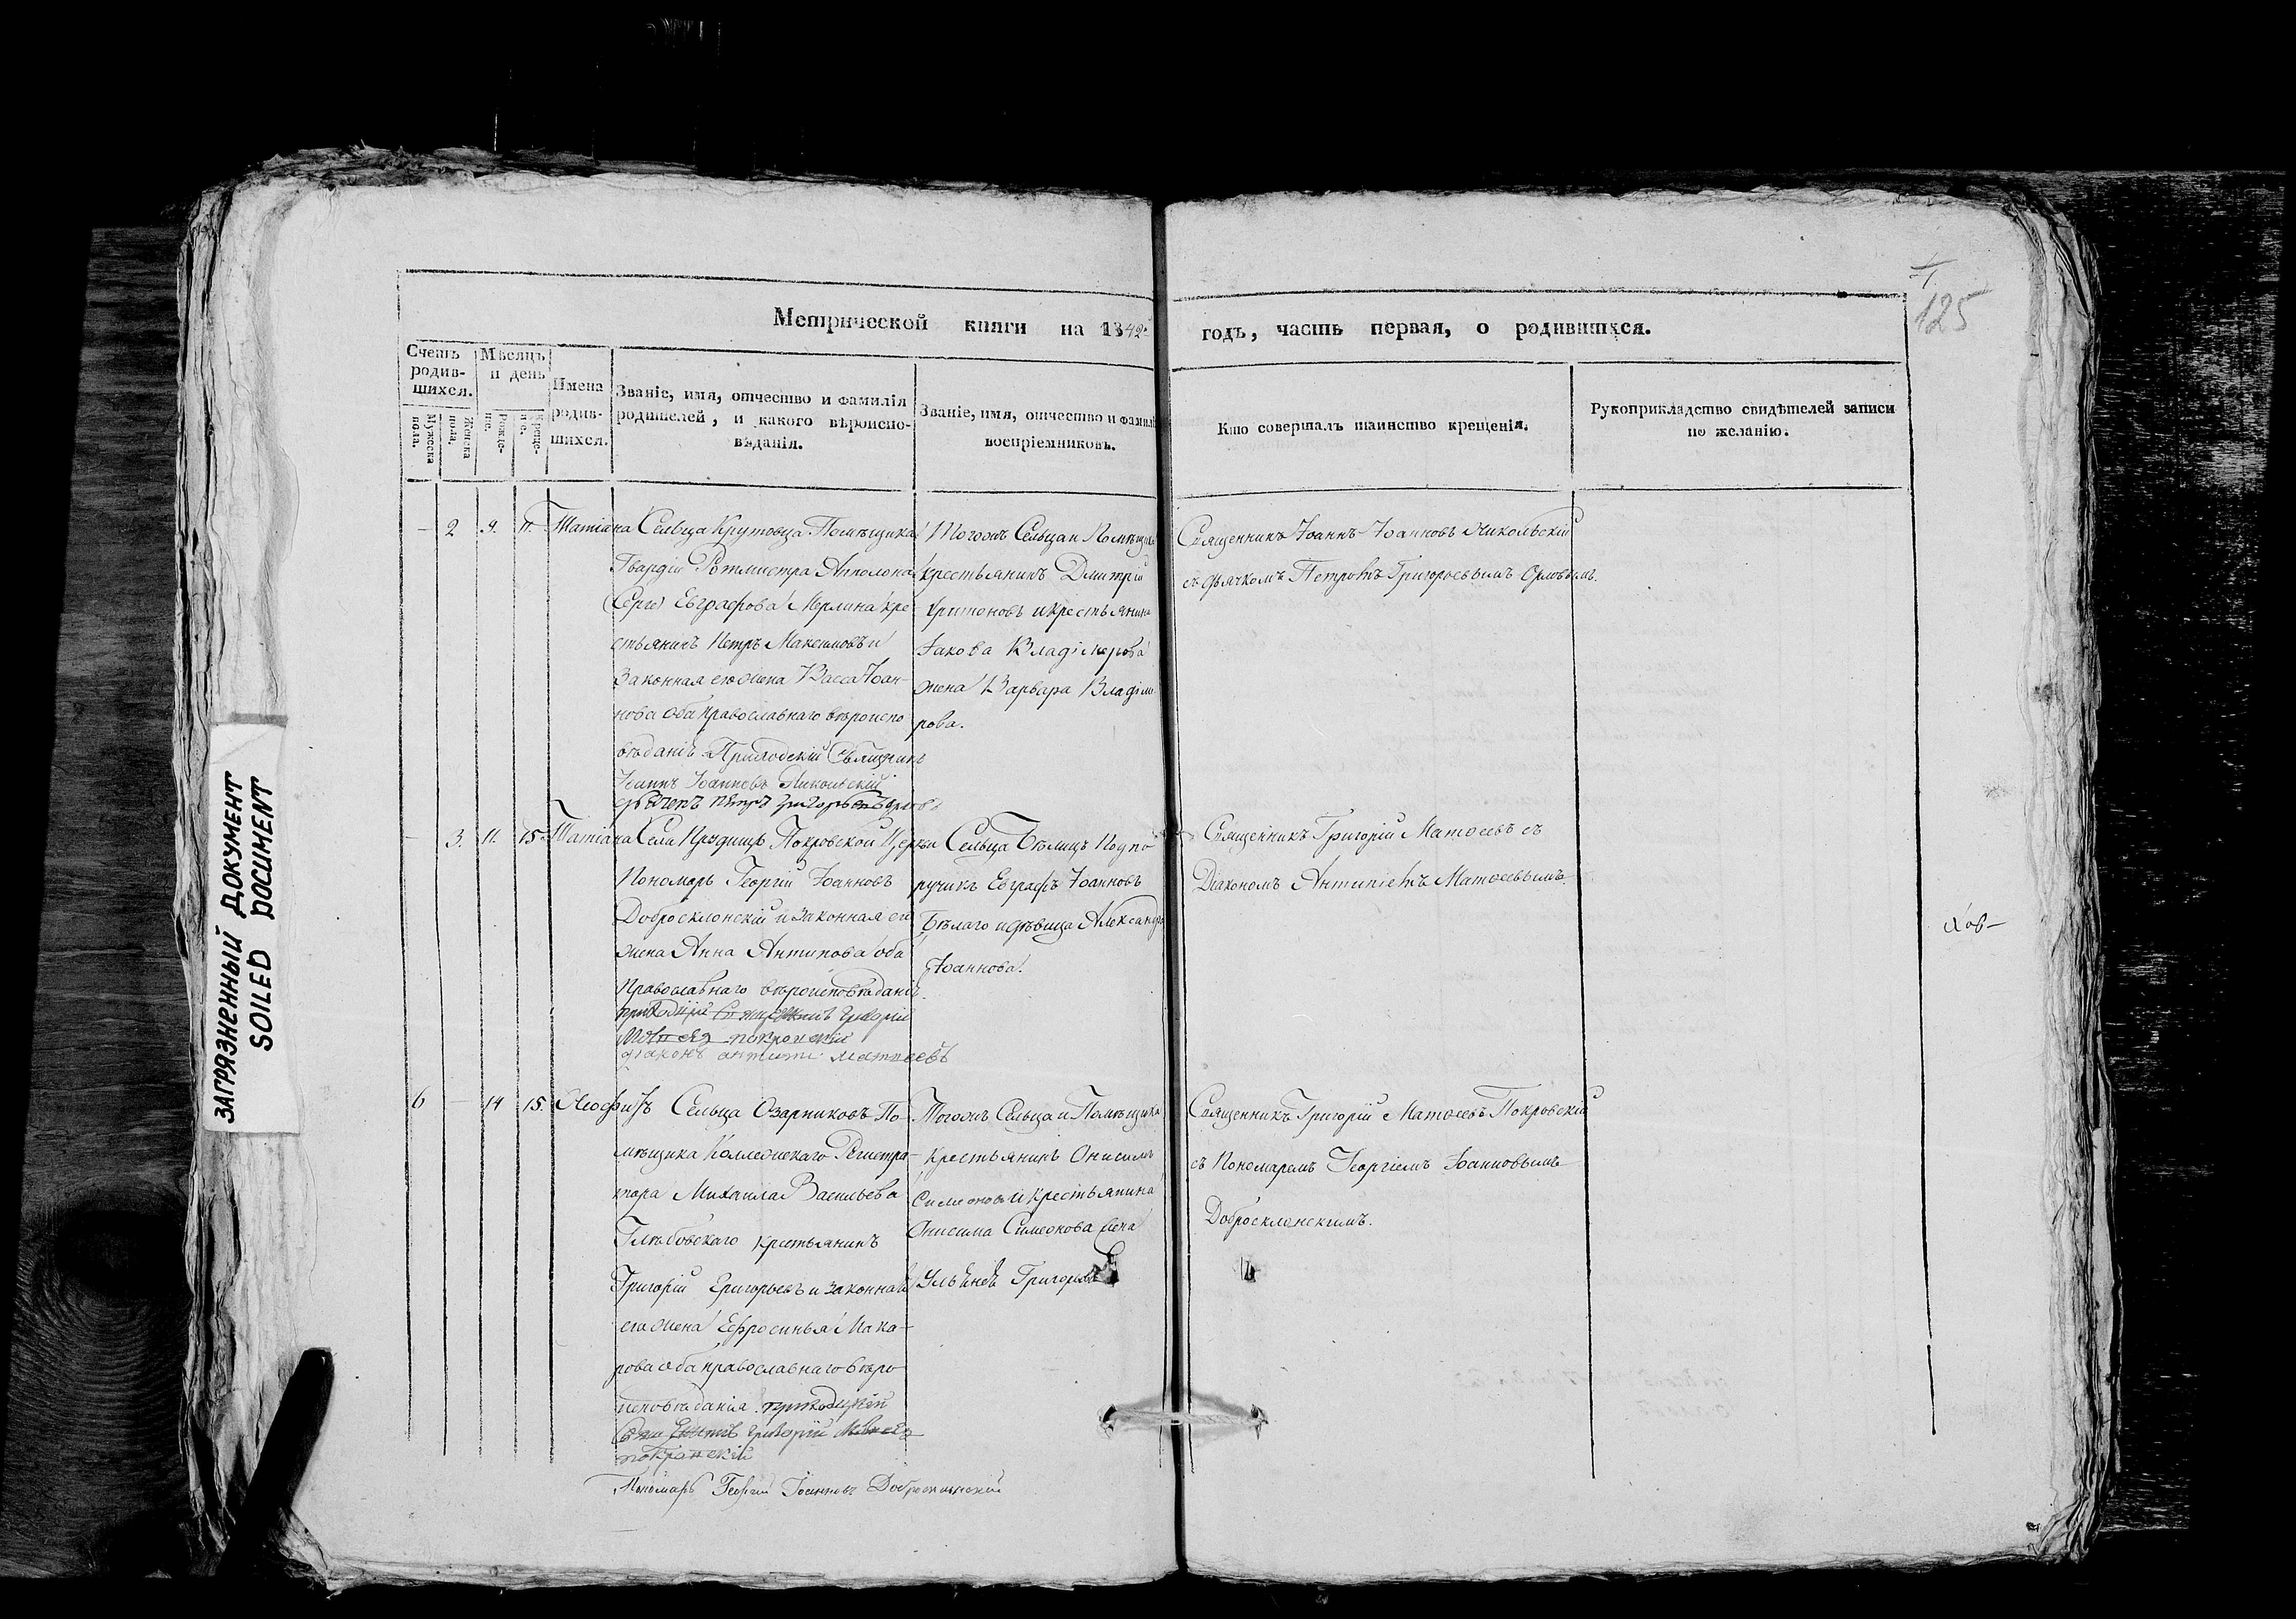 125
Метрической книги на 1842.
годъ, часть первая, о родившихся.
Счетъ родившихся.
Мѣсяцъ и день
Имена родившихся.
Званіе, имя, отчество и фамилія родителей, и какого вѣроисповѣданія.
Званіе, имя, отчество и фамилія воспріемниковъ.
Кто совершалъ таинство крещенія.
Рукоприкладство свидѣтелей записи по желанію.
Мужеска пола.
Женска пола.
Рожденіе.
Крещеніе.
— 2 9. 11. Татіана
Сельца Крутовца Помѣщика
Гвардіи Ротмистра Апполона
Евграфова Мерлина кре-
стьянинъ Петръ Максимовъ и
Законная его жена Васса Іоан-
нова оба православнаго вѣроиспо
вѣданія Приходскій Священикъ
Іоаннъ Іоанновъ Никольскій
дьячекъ Петръ Григорьевъ Орловъ
Тогожъ Сельца и Помѣщика
крестьянинъ Дмитрій
Критоновъ и крестьянина
Іакова Владімерова
жена Варвара Владіме
рова.
Священникъ Іоаннъ Іоанновъ Никольскій
съ дьячкомъ Петромъ Григорьевымъ Орловымъ.
3. 11. 15. Татіана
Села Покровской Церкви
Пономарь Георгій Іоанновъ
Добросклонскій и законная его
жена Анна Антипова оба
Православнаго вѣроисповѣданія.
приходскій Священникъ Григорій
покровскій
діаконъ антипи матѳеевъ
Сельца Бѣлицъ Подпо
ручикъ Евграфъ Іоанновъ
Бѣлаго и дѣвица Александра
Іоаннова.
Священникъ Григорій Матѳеевъ съ
Діакономъ Антипіемъ Матѳеевымъ.
6 — 14 15. Неофитъ
Сельца Озариковъ По-
мѣщика Коллежскаго Регистра-
тора Михаила Васильева
Глѣбовскаго крестьянинъ
Григорій Григорьевъ и законная
его жена Ефросинья Мака-
рова оба православнаго вѣро
исповѣданія. приходскій
Священникъ Григорій Матѳеевъ
покровскій
Пономарь Георгій Іоанновъ Добросклонскій
Тогожъ Сельца и Помѣщика
крестьянинъ Онисимъ
Симеоновъ и крестьянина
Онисима Симеонова жена
Григорьева
Священникъ Григорій Матѳеевъ Покровскій
съ Пономаремъ Георгіемъ Іоанновымъ
Добросклонскимъ.
ЗАГРЯЗНЕННЫЙ ДОКУМЕНТ
SOILED DOCUMENT